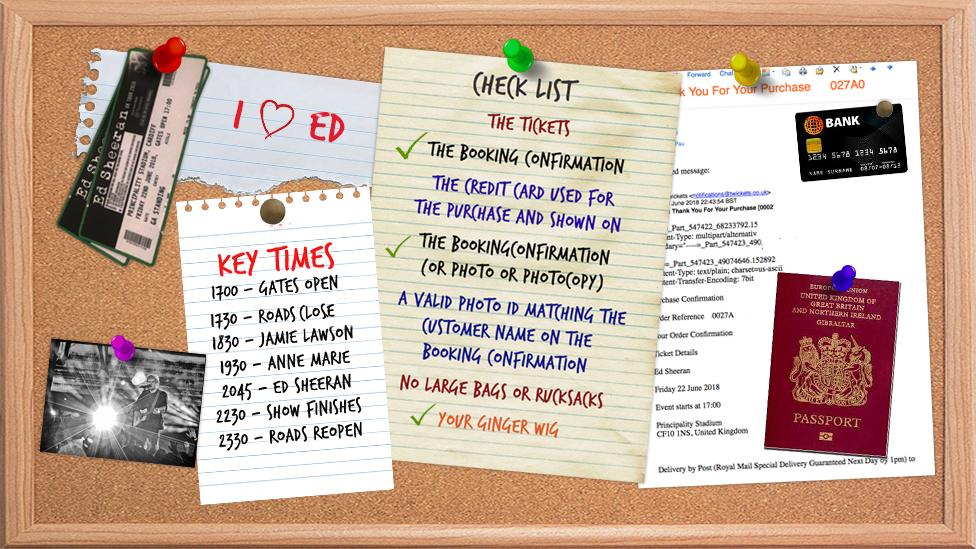 Ed Sheeran
Ed Sheeran
PRINCIPALITY STADIUM, CARDIFF
FRIDAY 22ND JUNE 2018, GATES OPEN 17:00
GA STANDING
I ♡ ED
KEY TIMES
1700 – GATES OPEN
1730 – ROADS CLOSE
1830 – JAMIE LAWSON
1930 – ANNE MARIE
2045 – ED SHEERAN
2230 – SHOW FINISHES
2330 – ROADS REOPEN
CHECK LIST
THE TICKETS
THE BOOKING CONFIRMATION
THE CREDIT CARD USED FOR
THE PURCHASE AND SHOWN ON
THE BOOKINGCONFIRMATION
(OR PHOTO OR PHOTOCOPY)
A VALID PHOTO ID MATCHING THE
CUSTOMER NAME ON THE
BOOKING CONFIRMATION
NO LARGE BAGS OR RUCKSACKS
YOUR GINGER WIG
Forward Chat
k You For Your Purchase 027A0
ed message:
ickets <notifications@twickets.co.uk>
June 2018 22:43:54 BST
Thank You For Your Purchase [0002
_Part_547422_68233792.15
ent-Type: multipart/alternativ
dary="----=_Part_547423_490
_Part_547423_49074646.152892
ent-Type: text/plain; charset=us-ascii
ent-Transfer-Encoding: 7bit
rchase Confirmation
der Reference 0027A
ur Order Confirmation
icket Details
Ed Sheeran
Friday 22 June 2018
Event starts at 17:00
Principality Stadium
CF10 1NS, United Kingdom
Delivery by Post (Royal Mail Special Delivery Guaranteed Next Day by 1pm) to
BANK
1234 5678 1234 5678
08/07=08/12
NAME SURNAME
EUROPEAN UNION
UNITED KINGDOM OF
GREAT BRITAIN
AND NORTHERN IRELAND
GIBRALTAR
PASSPORT